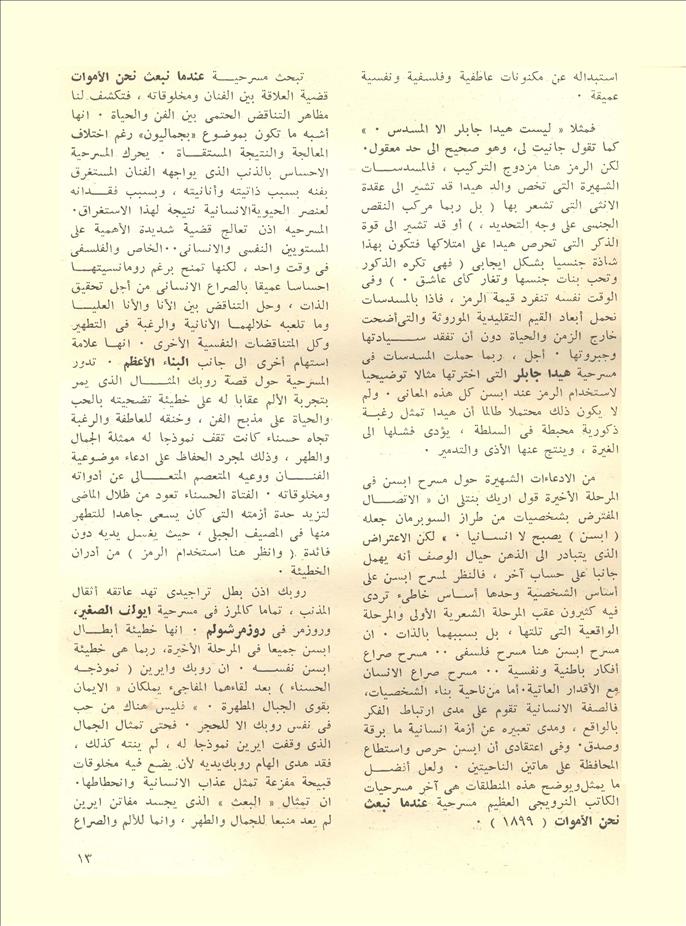 استبداله عن مكنونات عاطفية وفلسفية ونفسية
عميقة ·
فمثلا « ليست هيدا جابلر الا المسدس · »
كما تقول جانيت لى، وهو صحيح الى حد معقول·
لكن الرمز هنا مزدوج التركيب ، فالمسدسات
الشهيرة التى تخص والد هيدا قد تشير الى عقدة
الانثى التى تشعر بها ( بل ربما مركب النقص
الجنسى على وجه التحديد ، ) أو قد تشير الى قوة
الذكر التى تحرص هيدا على امتلاكها فتكون بهذا
شاذة جنسيا بشكل ايجابى ( فهى تكره الذكور
وتحب بنات جنسها وتغار كأى عاشق · ) وفى
الوقت نفسه تنفرد قيمة الرمز ، فاذا بالمسدسات
تحمل أبعاد القيم التقليدية الموروثة والتى أضحت
خارج الزمن والحياة دون أن تفقد سيادتها
وجبروتها · أجل ، ربما حملت المسدسات فى
مسرحية هيدا جابلر التى اخترتها مثالا توضيحيا
لاستخدام الرمز عند ابسن كل هذه المعانى · ولم
لا يكون ذلك محتملا طالما أن هيدا تمثل رغبة
ذكورية محبطة فى السلطة ، يؤدى فشلها الى
الغيرة ، وينتج عنها الأذى والتدمير ·
من الادعاءات الشهيرة حول مسرح ابسن فى
المرحلة الأخيرة قول اريك بنتلى ان « الاتصال
المفترض بشخصيات من طراز السوبرمان جعله
( ابسن ) يصبح لا انسانيا · » لكن الاعتراض
الذى يتبادر الى الذهن حيال الوصف أنه يهمل
جانبا على حساب آخر ، فالنظر لمسرح ابسن على
أساس الشخصية وحدها أساس خاطىء تردى
فيه كثيرون عقب المرحلة الشعرية الأولى والمرحلة
الواقعية التى تلتها ، بل بسببهما بالذات · ان
مسرح ابسن هنا مسرح فلسفى ·· مسرح صراع
أفكار باطنية ونفسية ·· مسرح صراع الانسان
مع الأقدار العاتية· أما من ناحية بناء الشخصيات،
فالصفة الانسانية تقوم على مدى ارتباط الفكر
بالواقع ، ومدى تعبيره عن أزمة انسانية ما برقة
وصدق· وفى اعتقادى أن ابسن حرص واستطاع
المحافظة على هاتين الناحيتين · ولعل أفضل
ما يمثل ويوضح هذه المنطلقات هى آخر مسرحيات
الكاتب النرويجى العظيم مسرحية عندما نبعث
نحن الأموات ( ١٨٩٩ ) ·
تبحث مسرحية عندما نبعث نحن الأموات
قضية العلاقة بين الفنان ومخلوقاته ، فتكشف لنا
مظاهر التناقض الحتمى بين الفن والحياة · انها
أشبه ما تكون بموضوع «بجماليون» رغم اختلاف
المعالجة والنتيجة المستقاة · يحرك المسرحية
الاحساس بالذنب الذى يواجهه الفنان المستغرق
بفنه بسبب ذاتيته وأنانيته ، وبسبب فقدانه
لعنصر الحيوية الانسانية نتيجة لهذا الاستغراق·
المسرحيه اذن تعالج قضية شديدة الأهمية على
المستويين النفسى والانسانى·· الخاص والفلسفى
فى وقت واحد ، لكنها تمنح برغم رومانسيتها
احساسا عميقا بالصراع الانسانى من أجل تحقيق
الذات ، وحل التناقض بين الأنا والأنا العليا
وما تلعبه خلالهما الأنانية والرغبة فى التطهير
وكل المتناقضات النفسية الأخرى · انها علامة
استهام أخرى الى جانب البناء الأعظم · تدور
المسرحية حول قصة روبك المثال الذى يمر
بتجربة الألم عقابا له على خطيئة تضحيته بالحب
والحياة على مذبح الفن ، وخنقه للعاطفة والرغبة
تجاه حسناء كانت تقف نموذجا له ممثلة الجمال
والطهر ، وذلك لمجرد الحفاظ على ادعاء موضوعية
الفنان ووعيه المتعصم المتعالى عن أدواته
ومخلوقاته · الفتاة الحسناء تعود من ظلال الماضى
لتزيد حدة أزمته التى كان يسعى جاهدا للتطهر
منها فى المصيف الجبلى ، حيث يغسل يديه دون
فائدة ( وانظر هنا استخدام الرمز ) من أدران
الخطيئة ·
روبك اذن بطل تراجيدى تهد عاتقه أثقال
المذنب ، تماما كالمرز فى مسرحية ايولف الصغير،
وروزمر فى روزمرشولم · انها خطيئة أبطال
ابسن جميعا فى المرحلة الأخيرة، ربما هى خطيئة
ابسن نفسه · ان روبك وايرين ( نموذجه
الحسناء ) بعد لقاءهما المفاجىء يملكان « الايمان
بقوى الجبال المطهرة · » فليس هناك من حب
فى نفس روبك الا للحجر · فحتى تمثال الجمال
الذى وقفت ايرين نموذجا له ، لم ينته كذلك ،
فقد هدى الهام روبك يديه لأن يضع فيه مخلوقات
قبيحة مفزعة تمثل عذاب الانسانية وانحطاطها·
ان تمثال « البعث » الذى يجسد مفاتن ايرين
لم يعد منبعا للجمال والطهر ، وانما للألم والصراع
١٣